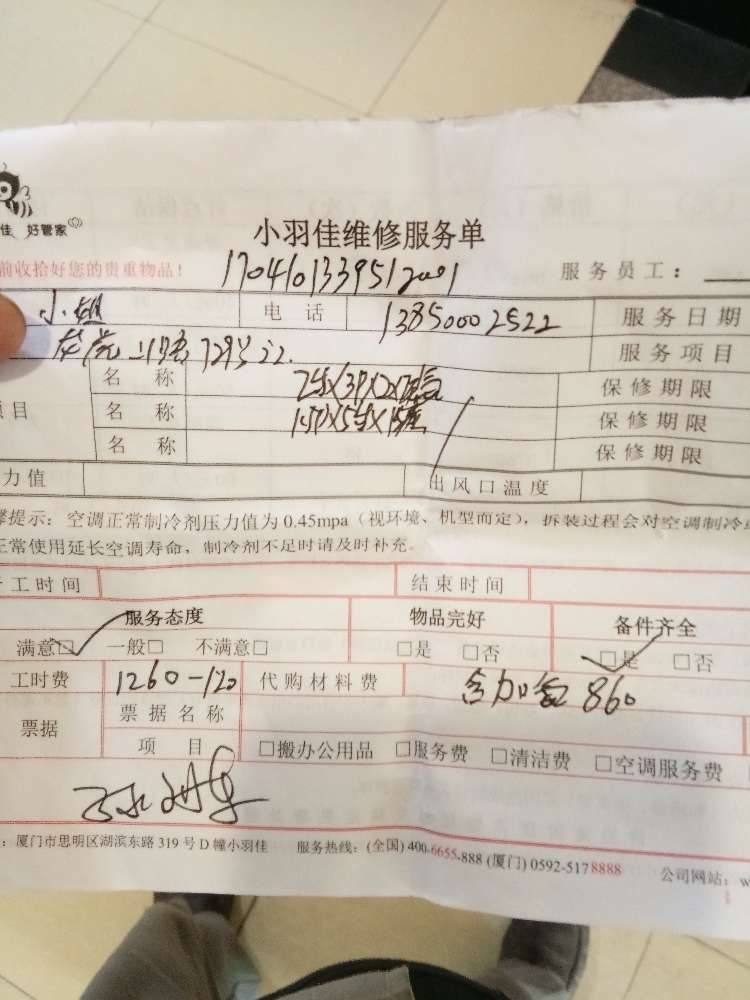 佳 好管家
小羽佳维修服务单
前收拾好您的贵重物品！ 1704101339512001 服务员工：
小姐 电话 13850002522 服务日期
729 服务项目
名称 保修期限
项目 名称 保修期限
名称 保修期限
力值 出风口温度
提示：空调正常制冷剂压力值为 0.45mpa（视环境、机型而定），拆装过程会对空调制冷
正常使用延长空调寿命，制冷剂不足时请及时补充。
工时间 结束时间
服务态度 物品完好 备件齐全
满意□ 一般□ 不满意□ □是 □否 □是 □否
工时费 1260-120 代购材料费 含加氨 860
票据 票据名称
项目 □搬办公用品 □服务费 □清洁费 □空调服务费
：厦门市思明区湖滨东路 319 号 D 幢小羽佳 服务热线：(全国) 400-6655-888 (厦门) 0592-5178888 公司网站：w